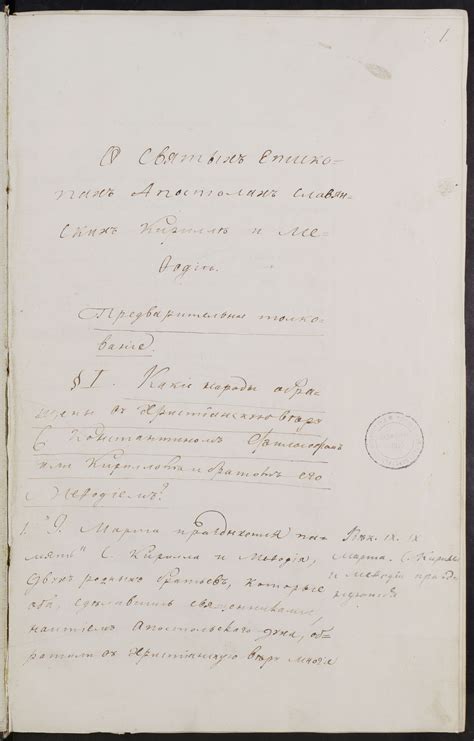 1
О Святыхъ Еписко-
пахъ Апостолахъ славян-
скихъ Кириллѣ и Ме-
ѳодіи.
Предварительни толко-
ваніе
§ I. Какіе народы обра-
щены въ Христіанскую вѣру
С Константиномъ Философомъ
или Кирилломъ и братомъ его
Меѳодіемъ?
1. "9. Марта празднуется па-
мять" С. Кирилла и Меѳодія,
двухъ родныхъ братьевъ, которые
оба, сдѣлавшись священниками,
Апостольскаго духа, об-
ратили въ Христіанскую вѣру многія
IX
Марта. С. Кирил
и Меѳодія празд